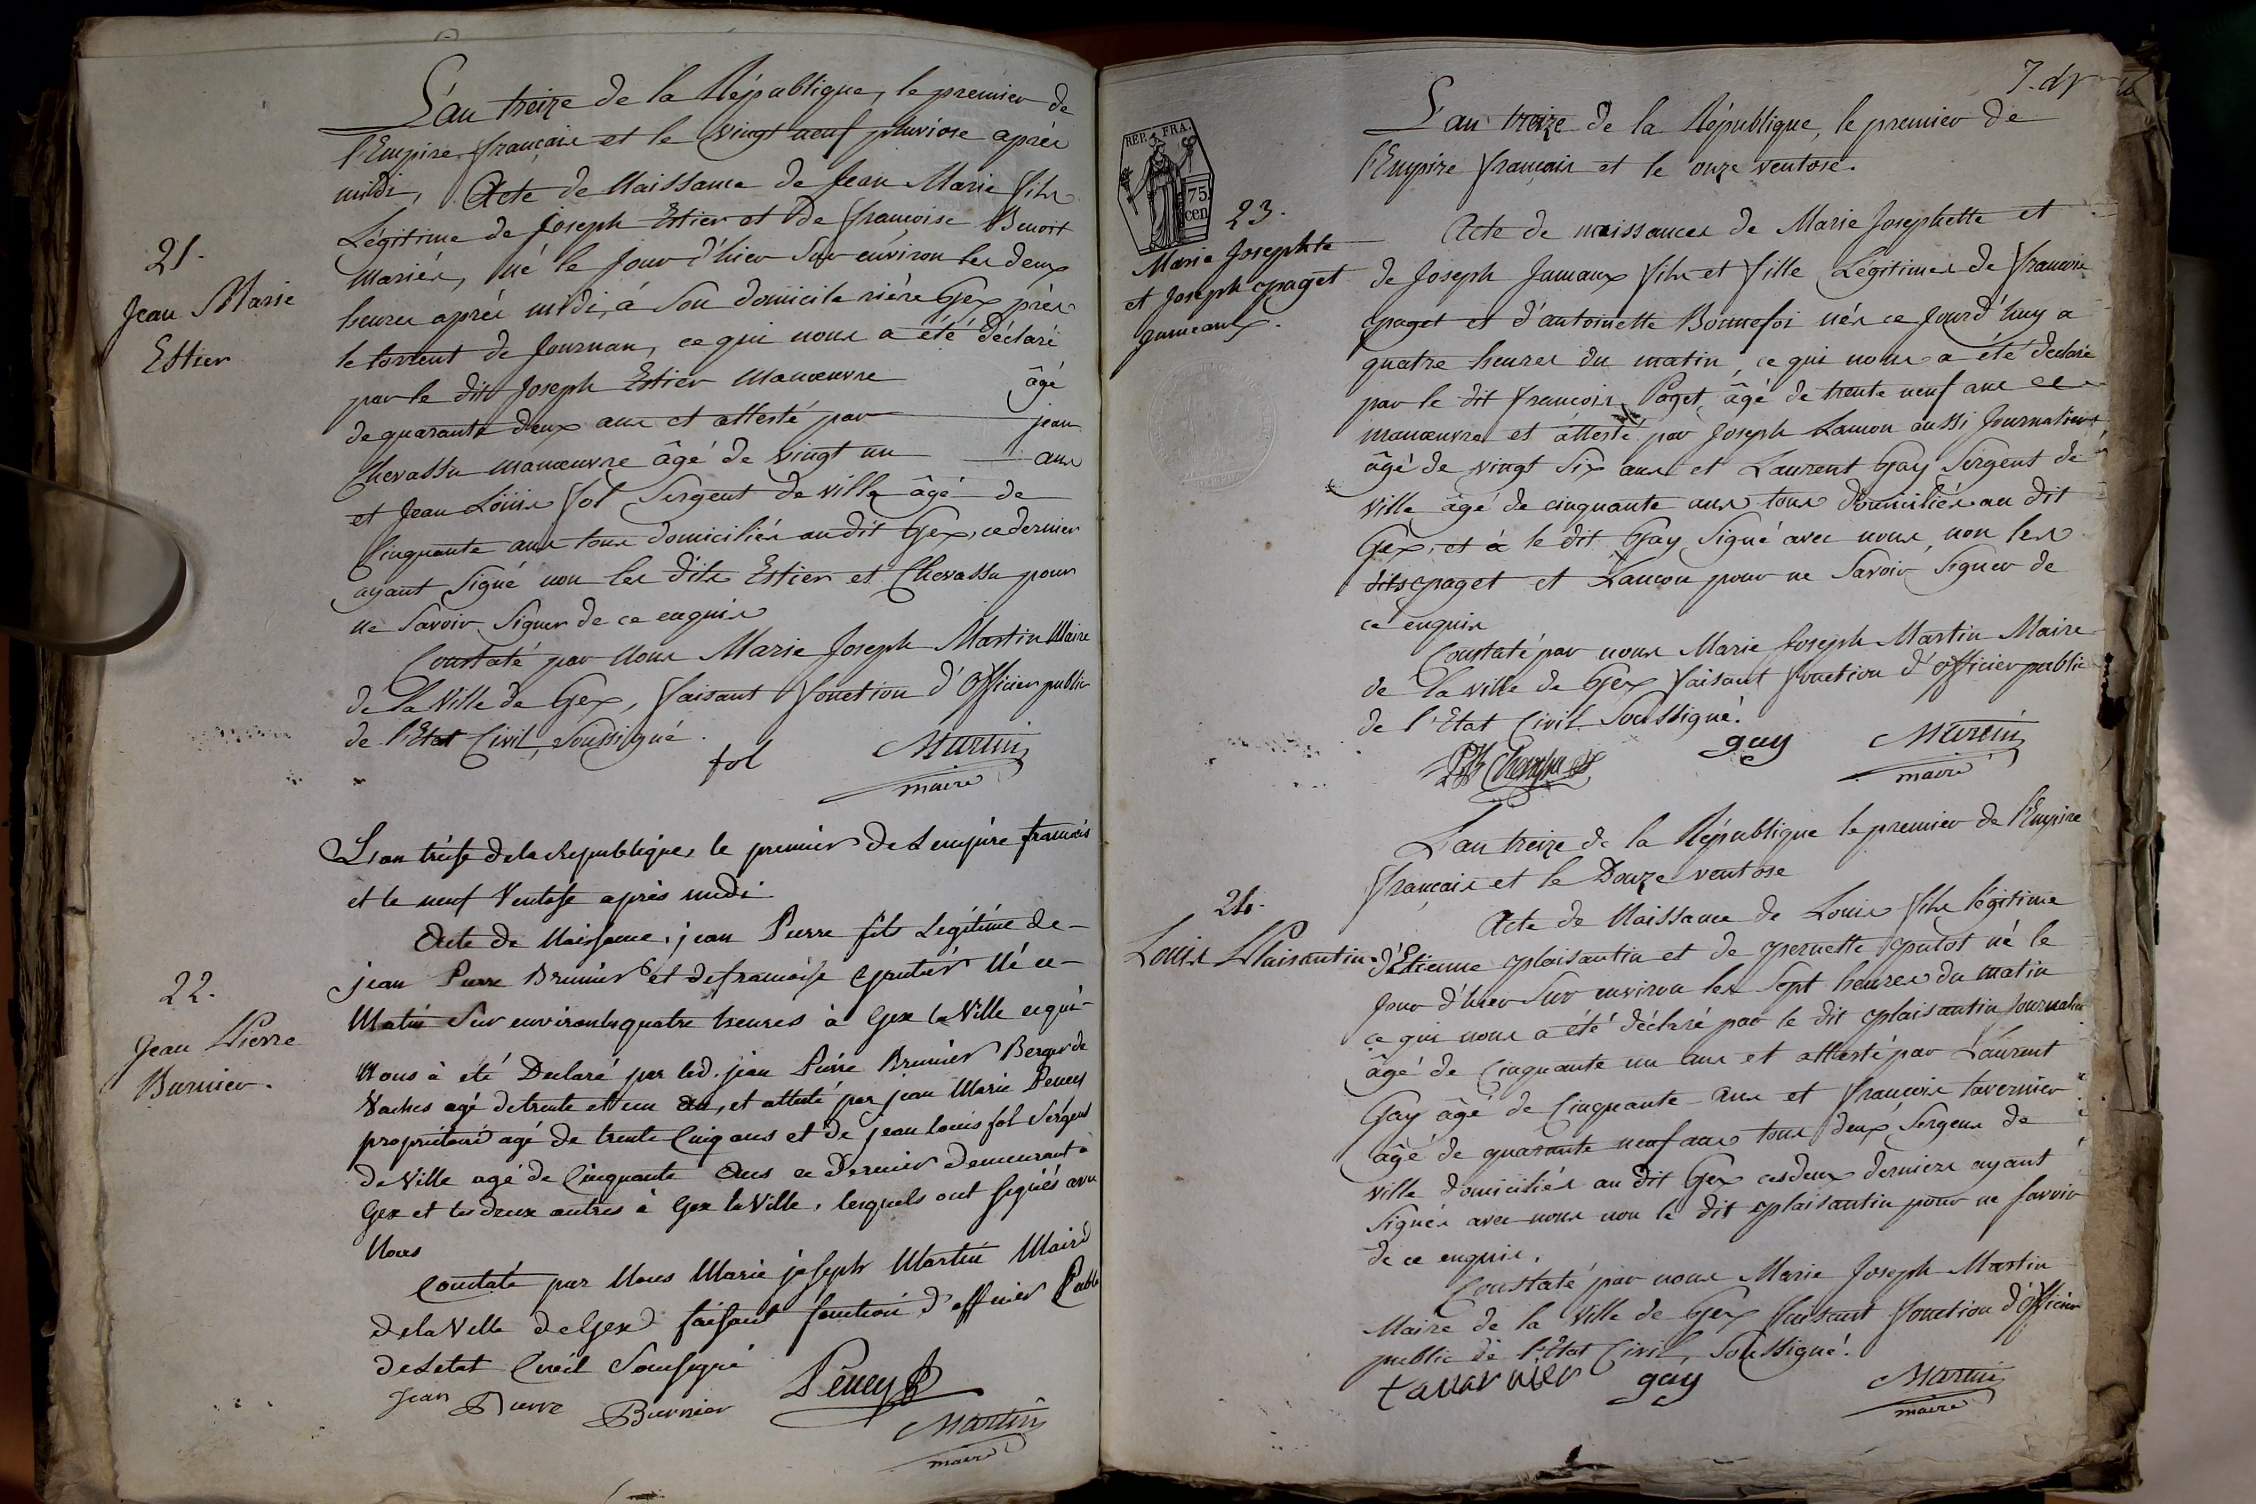 L'an treize de la République, le premier de
l'Empire français et le vingt neuf pluviose après
midi, Acte de Naissance de Jean Marie fils
Légitime de Joseph Estier et de françoise Benoit
mariés, né le jour d'hier Sur environ les deux
heures après midi, à Son domicile rière Gex près
le torrent de Journan, ce qui nous a été déclaré
par le dit Joseph Estier manœuvre âgé
de quarante deux ans et attesté par jean
Chevassu manœuvre âgé de vingt un ans
et Jean Louis fol Sergent de ville âgé de
Cinquante ans tous domiciliés au dit Gex, ce dernier
ayant Signé non les dits Estier et Chevassu pour
ne Savoir Signer de ce enquis
Constaté par Nous Marie Joseph Martin Maire
de La Ville de Gex, faisant fonction d'Officier public
de l'Etat Civil, Soussigné.
fol Martin
maire
21.
Jean Marie
Estier
L'an treise de la Republique, le premier de L'empire francois
et le neuf Ventose après midi
Acte de Naissance, jean Pierre fils Légitime de
jean Pierre Brunier et de francoise
Matin Sur environ les quatre heures à Gex la Ville ce qui
Nous à eté Declaré par led. jean Pierre Brunier Berger de
Vaches agé de trente et un an, et attesté par jean Marie Peney
proprietaire agé de trente Cinq ans et de jean louis fol Sergent
de Ville agé de Cinquante Ans ce Dernier demeurant a
Gex et les deux autres à Gex la Ville, lesquels ont signés avec
Nous
Constaté par Nous Marie joseph Martin Maire
de la Ville de Gex faisant fonction d'officier Public
de Letat Civil Sousigné
Jean Pierre Burnier Peney
Martin
maire
22.
Jean Pierre
Burnier.
7.
L'an treize de la République, le premier de
l'Empire français et le onze ventose.
REP. FRA.
75
cen
23.
Marie Josephte
et Joseph paget
Jumeaux.
Acte de naissances de Marie Josephette et
de Joseph Jumaux fils et fille Légitimes de francois
paget et d'antoinette Bonnefoi nés ce jourd'huy a
quatre heures du matin, ce qui nous a été déclaré
par le dit francois Paget âgé de trente neuf ans
manœuvre et attesté par Joseph Lancon aussi Journalier
âgé de vingt Six ans et Laurent Gay Sergent de
ville âgé de cinquante ans tous domiciliés au dit
Gex, et à le dit Gay Signé avec nous, non les
dits paget et Lancon pour ne Savoir Signer de
ce enquis
Constaté par nous Marie Joseph Martin Maire
de la Ville de Gex faisant fonction d'officier public
de l'Etat Civil Soussigné.
gay Martin
maire
L'an treize de la République le premier de l'Empire
français et le Douze ventose
24.
Louis Plaisantin.
Acte de Naissance de Louis fils légitime
d'Etienne plaisantin et de pernette putot né le
jour d'hier Sur environ les Sept heures du matin
ce qui nous a été déclaré par le dit plaisantin Journalier
âgé de Cinquante un ans et attesté par Laurent
Gay âgé de Cinquante ans et francois tavernier
âgé de quarante neuf ans tous deux Sergens de
ville domiciliés au dit Gex ces deux derniers ayant
Signés avec nous non le dit plaisantin pour ne savoir
de ce enquis.
Constaté par nous Marie Joseph Martin
Maire de la Ville de Gex faisant fonction d'officier
public de l'Etat Civil, Soussigné.
tavarnier gay Martin
maire